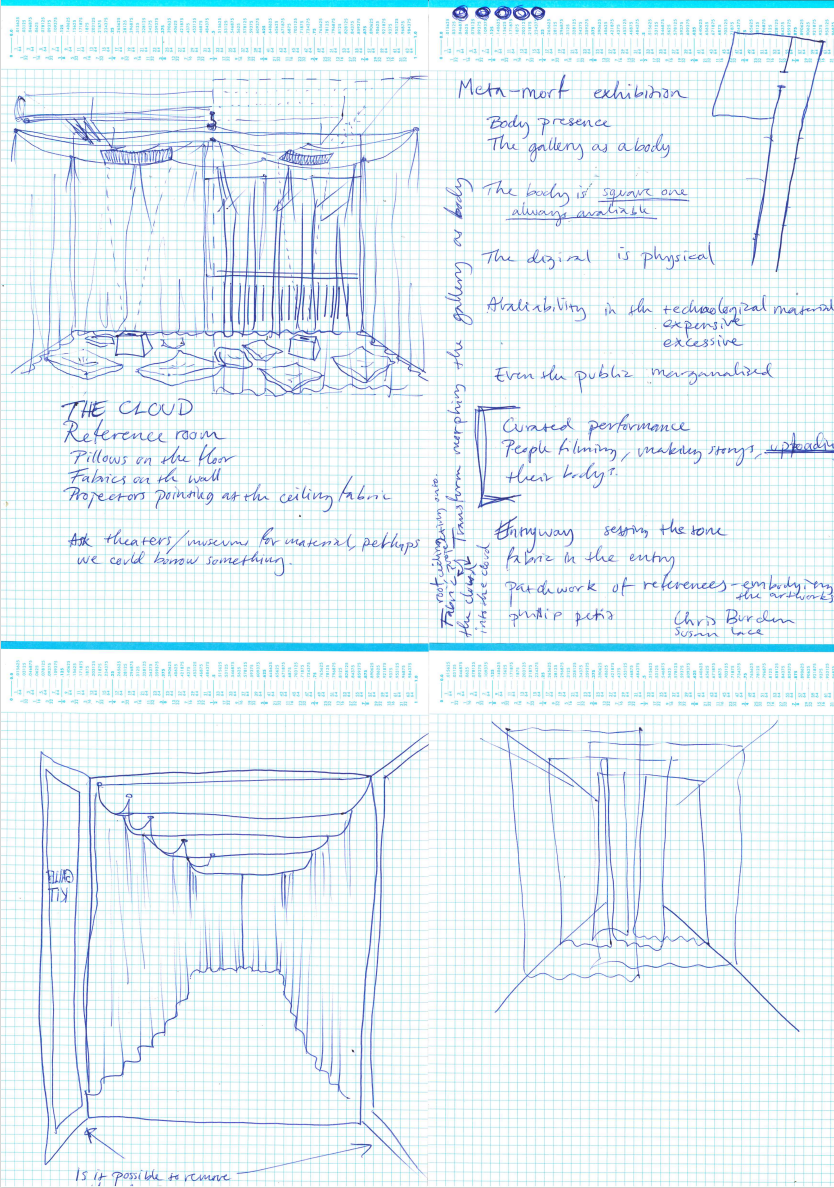 THE CLOUD
Reference room
Pillows on the floor
Fabrics on the wall
Projectors pointing at the ceiling fabric
Ask theaters/museums for material, perhaps
we could borrow something.
Meta-morf exhibition
Body presence
The gallery as a body
The body is square one
always avaliable
The digital is physical
Avaliability in the technological material
expensive
excessive
Even the public marganalized
Curated performance
People filming, making storys, uploadin
their bodys.
Entryway setting the tone
fabric in the entry
patchwork of references - embodying
the artworks
phillip
Chris Burden
Susan Lace
Transform morphing the gallery as body
Fabric
the cloud
into the cloud
KIT
Is it possible to remove